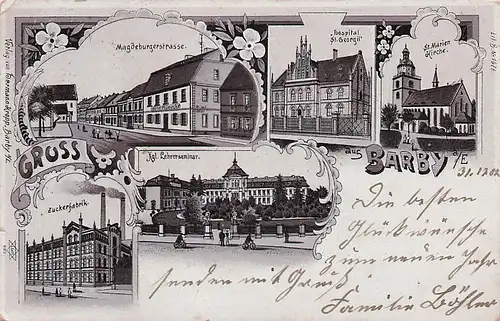 Magdeburgerstrasse.
Hospital
St. Georgii
St. Marien
Kirche.
GRUSS
aus BARBY a/E
Kgl. Lehrerseminar.
Zuckerfabrik.
31.12.02
Die besten
Glückwünsche
zum neuen Jahr
senden mit Gruß
Familie Böhler